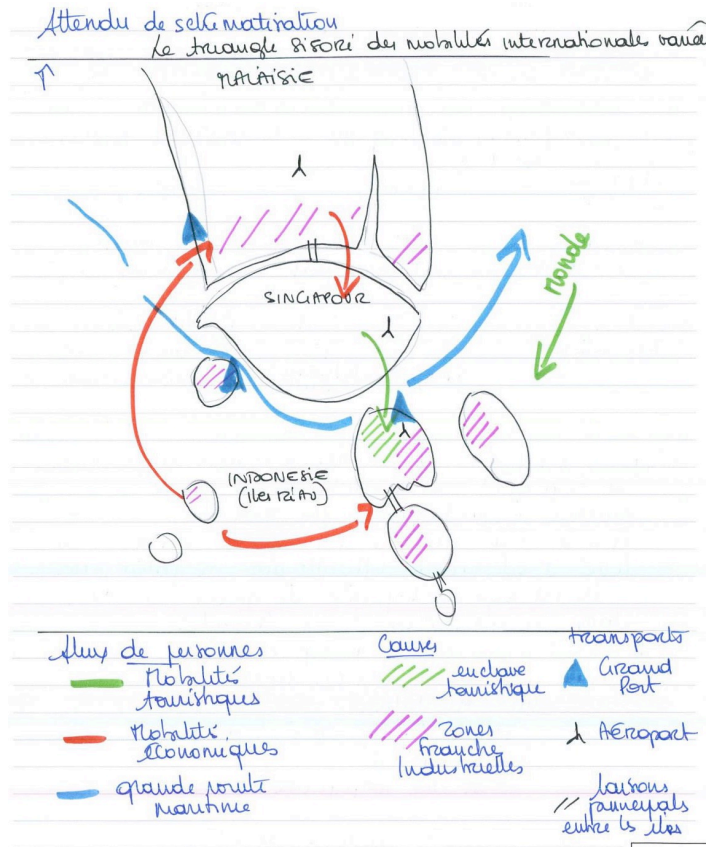 Attendu de schématisation
Le triangle SIJORI des mobilités internationales
MALAISIE
SINGAPOUR
Monde
INDONESIE
(Iles RIAU)
flux de personnes
Mobilités
touristiques
Mobilités
économiques
grande route
maritime
Causes
enclave
touristique
zones
Franche
Industrielles
transports
Grand
Port
AÉROPORT
liaisons
principals
entre les iles